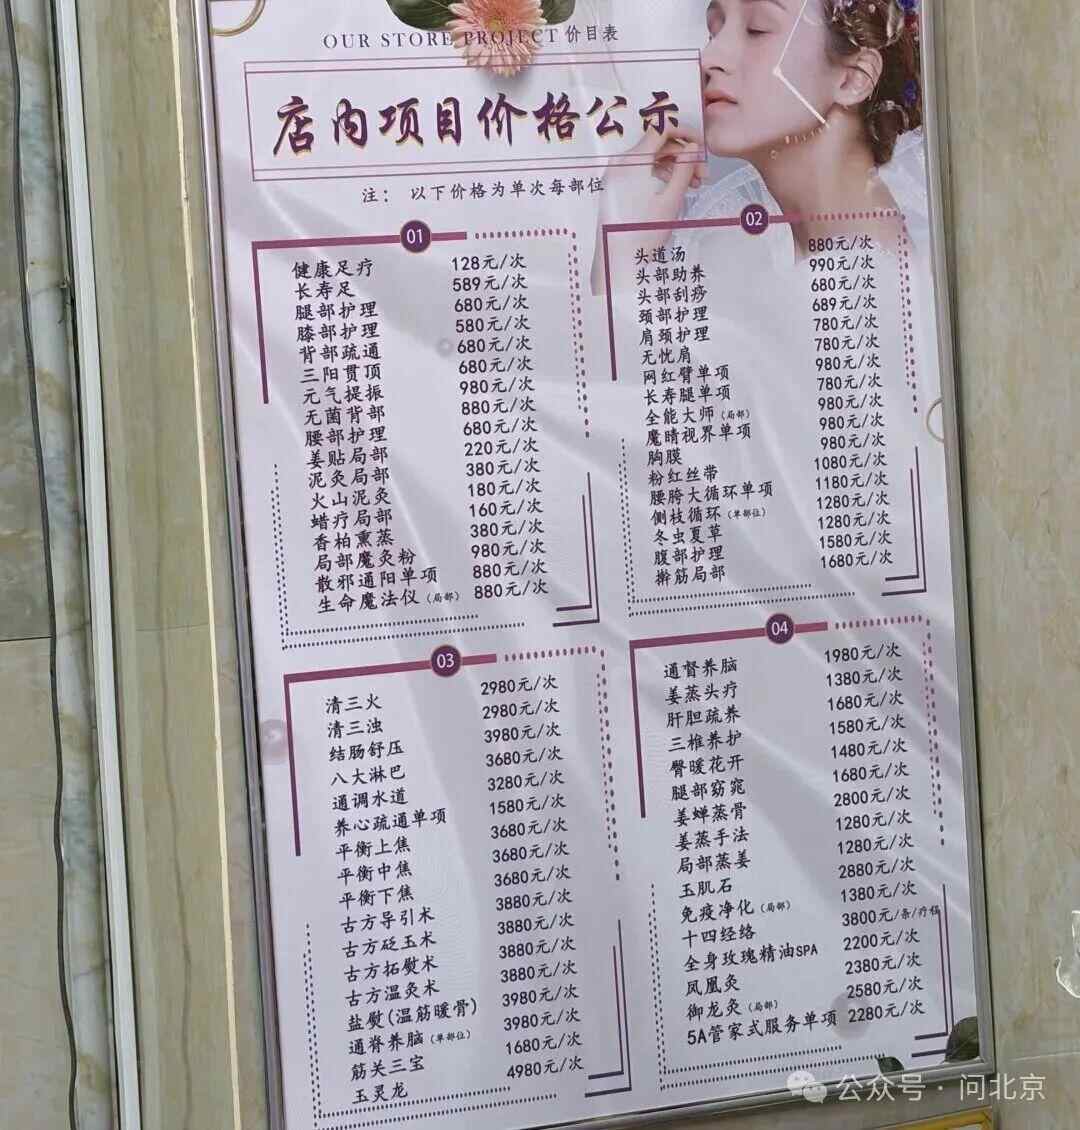 OUR STORE PROJECT 价目表
店内项目价格公示
注： 以下价格为单次每部位
01
健康足疗 128元/次
长寿足 589元/次
腿部护理 680元/次
膝部护理 580元/次
背部疏通 680元/次
三阳贯顶 680元/次
元气提振 980元/次
无菌背部 880元/次
腰部护理 680元/次
姜贴局部 220元/次
泥灸局部 380元/次
火山泥灸 180元/次
蜡疗局部 160元/次
香柏熏蒸 380元/次
局部魔灸粉 980元/次
散邪通阳单项 880元/次
生命魔法仪(局部) 880元/次
02
头道汤 880元/次
头部助养 990元/次
头部刮痧 680元/次
颈部护理 689元/次
肩颈护理 780元/次
无忧肩 780元/次
网红臂单项 980元/次
长寿腿单项 780元/次
全能大师(局部) 980元/次
魔睛视界单项 980元/次
胸膜 980元/次
粉红丝带 1080元/次
腰胯大循环单项 1180元/次
侧枝循环(单部位) 1280元/次
冬虫夏草 1280元/次
腹部护理 1580元/次
擀筋局部 1680元/次
03
清三火 2980元/次
清三浊 2980元/次
结肠舒压 3980元/次
八大淋巴 3680元/次
通调水道 3280元/次
养心疏通单项 1580元/次
平衡上焦 3680元/次
平衡中焦 3680元/次
平衡下焦 3680元/次
古方导引术 3880元/次
古方砭玉术 3880元/次
古方拓熨术 3880元/次
古方温灸术 3880元/次
盐熨(温筋暖骨) 3980元/次
通脊养脑(单部位) 3980元/次
筋关三宝 1680元/次
玉灵龙 4980元/次
04
通督养脑 1980元/次
姜蒸头疗 1380元/次
肝胆疏养 1680元/次
三椎养护 1580元/次
臀暖花开 1480元/次
腿部窈窕 1680元/次
姜蝉蒸骨 2800元/次
姜蒸手法 1280元/次
局部蒸姜 1280元/次
玉肌石 2880元/次
免疫净化(局部) 1380元/次
十四经络 3800元/条/疗程
全身玫瑰精油SPA 2200元/次
凤凰灸 2380元/次
御龙灸(局部) 2580元/次
5A管家式服务单项 2280元/次
公众号·问北京